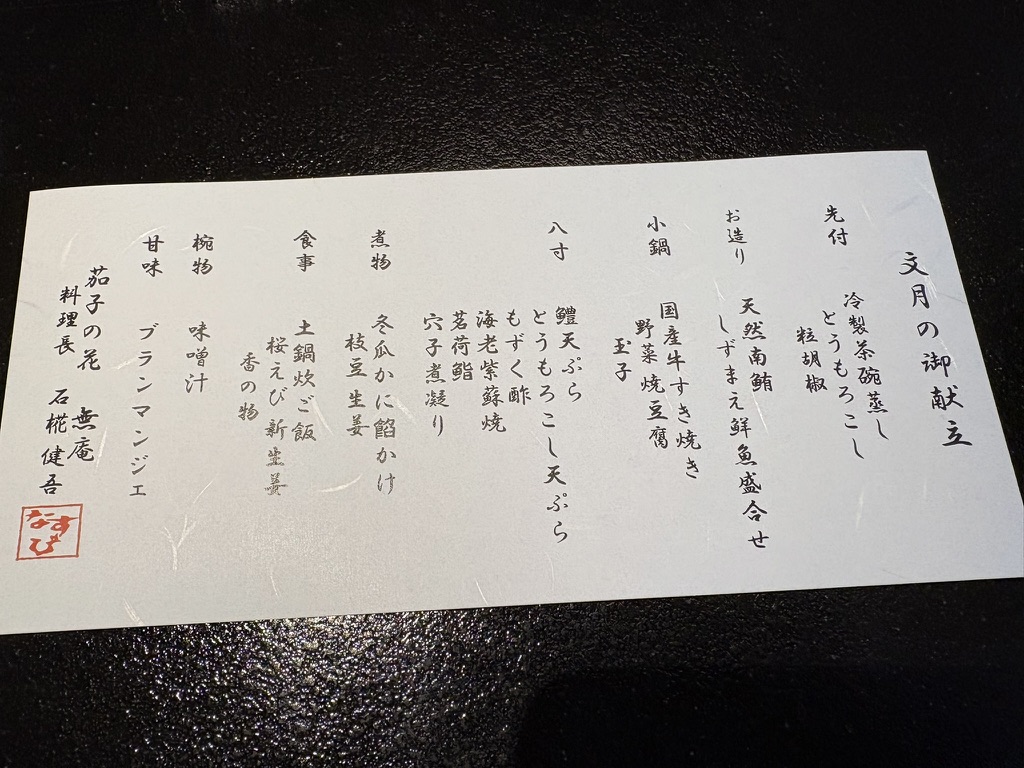 文月の御献立
先付
冷製茶碗蒸し
とうもろこし
粒胡椒
お造り
天然南鮪
しずまえ鮮魚盛合せ
小鍋
国産牛すき焼き
野菜 焼豆腐
玉子
八寸
鱧天ぷら
とうもろこし天ぷら
もずく酢
海老紫蘇焼
茗荷鮨
穴子煮凝り
煮物
冬瓜かに餡かけ
枝豆 生姜
食事
土鍋炊ご飯
桜えび 新生姜
香の物
椀物
味噌汁
甘味
ブランマンジェ
茄子の花 無庵
料理長 石椛 健吾
なすび